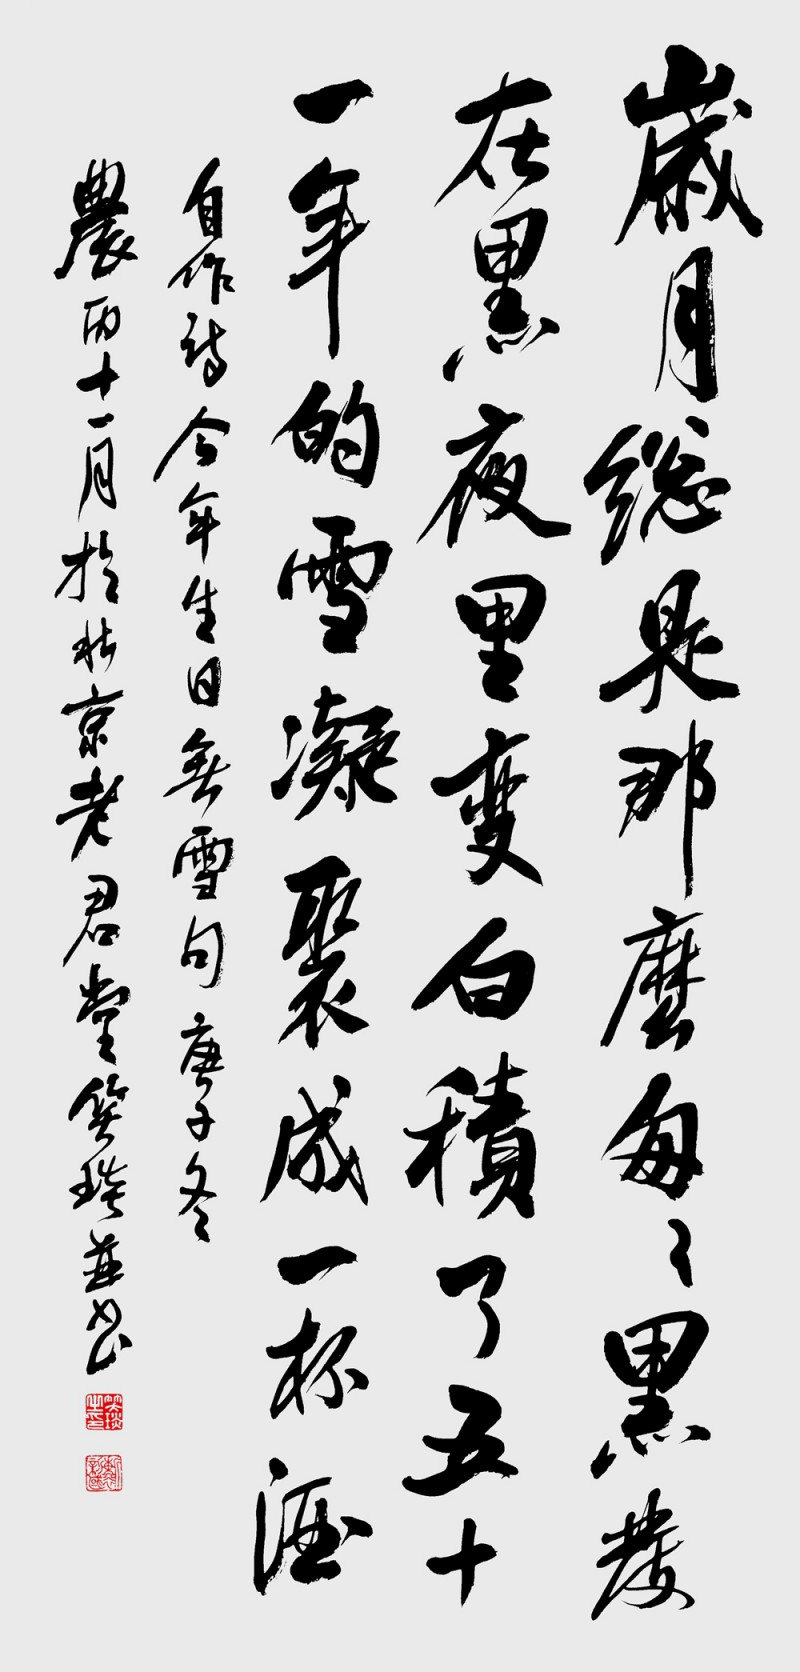 歲月總是那麼匆々黑髮
在黑夜里变白積了五十
一年的雪凝聚成一杯酒
自作詩今年生日無雪句庚子冬
農历十一月於北京老君堂笑琰並书